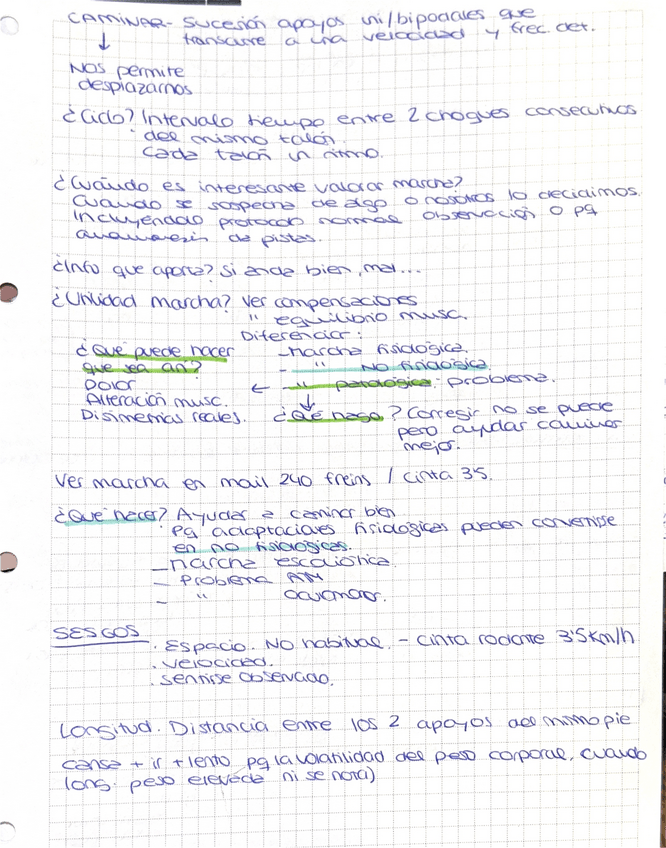 CAMINAR - Sucesión apoyos uni/bipodales que
transcurre a una velocidad y frec. det.
↓
Nos permite
desplazarnos
¿Ciclo? Intervalo tiempo entre 2 choques consecutivos
del mismo talón.
Cada talón un ritmo.
¿Cuándo es interesante valorar marcha?
Cuando se sospecha de algo o nosotros lo decidimos.
Incluyendo protocolo normal observación o pq
de pistas.
¿Info que aporta? Si anda bien, mal...
¿Utilidad marcha? Ver compensaciones
" equilibrio musc.
Diferenciar:
- Marcha fisiológica.
- " No fisiológica.
← - " patológica: problema.
¿Qué puede hacer
que sea así?
Dolor
Alteración musc.
Disimetrías reales.
↓
¿Qué hago? Corregir no se puede
pero ayudar caminar
mejor.
Ver marcha en mail 240 / cinta 3'5.
¿Qué hacer? Ayudar a caminar bien
Pq adaptaciones fisiológicas pueden convertirse
en no fisiológicas.
- Marcha
- Problema
- "
SESGOS
. Espacio. No habitual. - Cinta rodante 3'5 km/h
. Velocidad.
. Sentirse observado.
Longitud. Distancia entre los 2 apoyos del mismo pie
cansa + ir + lento pq la volatilidad del peso corporal, cuando
long. peso eleveda ni se nota)